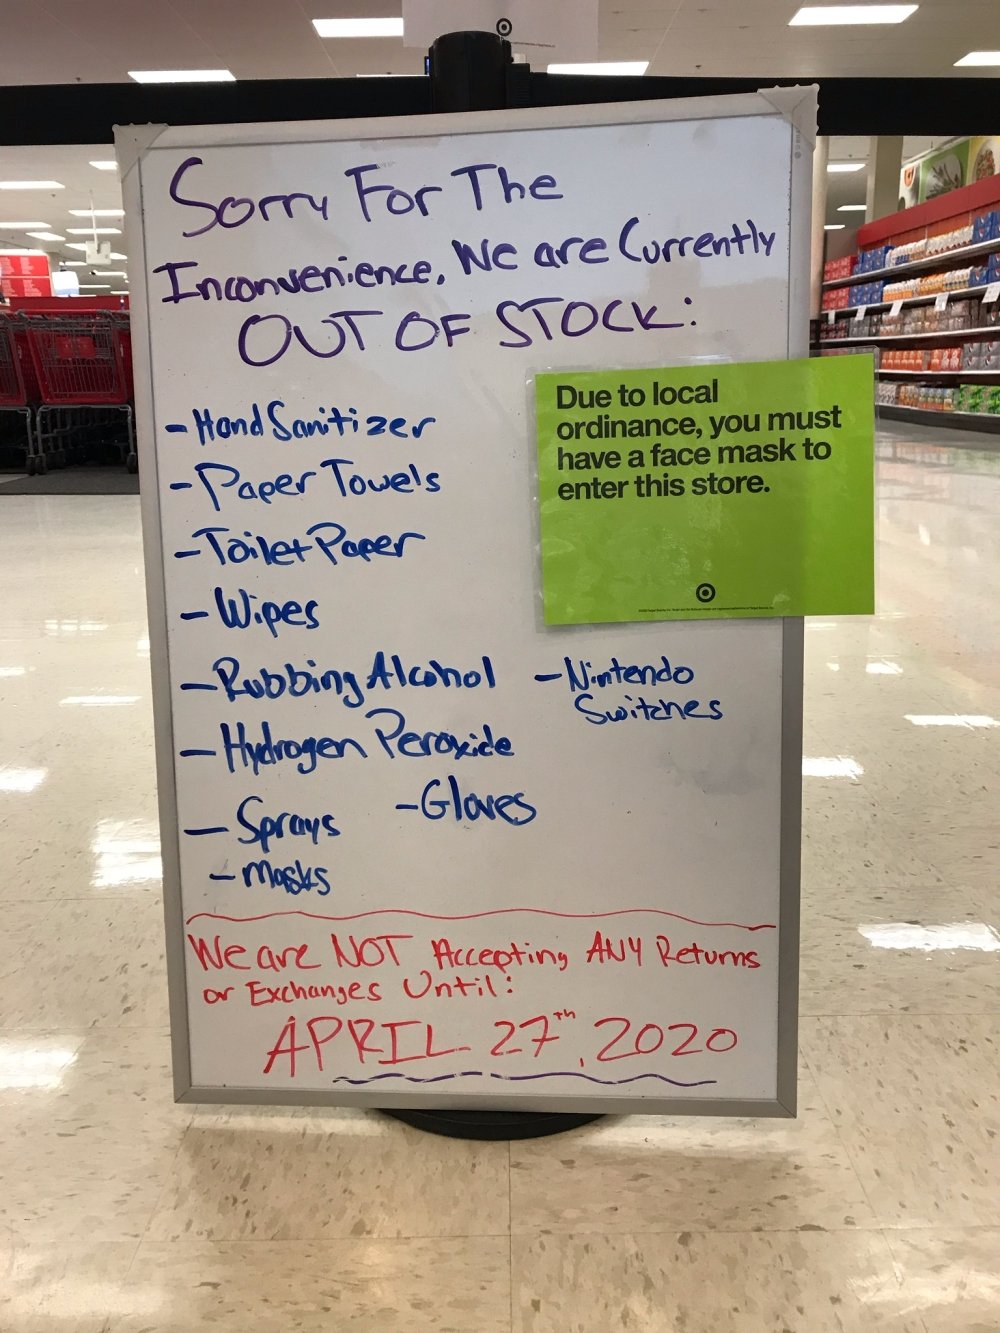 Sorry For The
Inconvenience, We are Currently
OUT OF STOCK:
- Hand Sanitizer
- Paper Towels
- Toilet Paper
- Wipes
- Rubbing Alcohol
- Hydrogen Peroxide
- Sprays
- Gloves
- Masks
- Nintendo
Switches
Due to local
ordinance, you must
have a face mask to
enter this store.
We are NOT Accepting ANY Returns
or Exchanges Until:
APRIL 27th, 2020